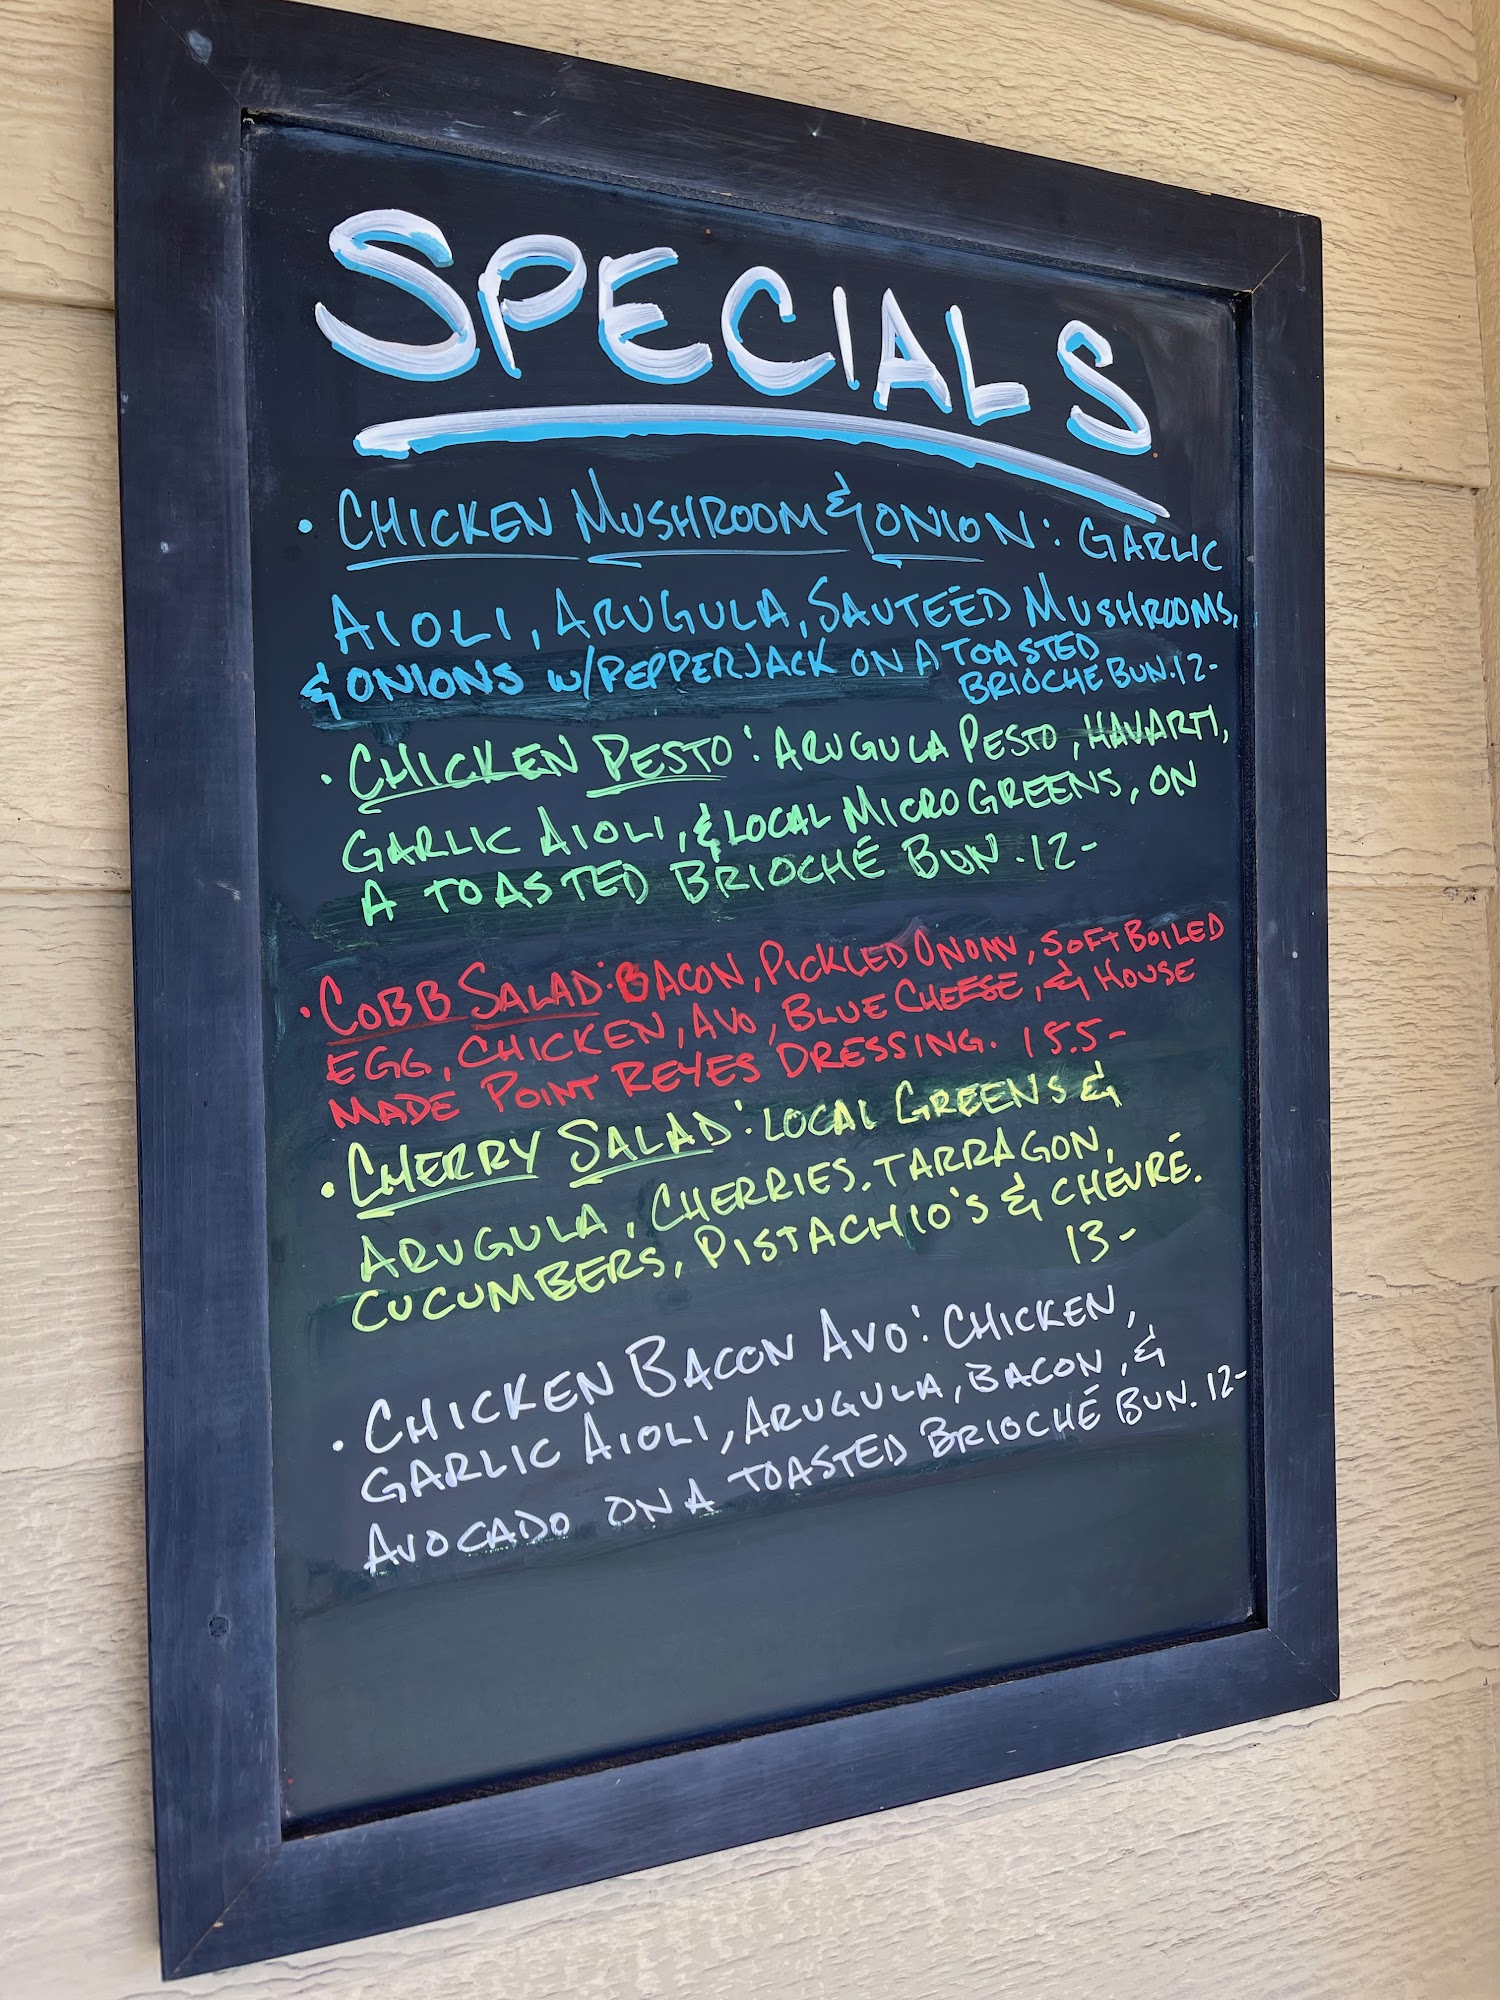 SPECIALS
• CHICKEN MUSHROOM & ONION: GARLIC
AIOLI, ARUGULA, SAUTEÉD MUSHROOMS,
& ONIONS W/PEPPERJACK ON A TOASTED
BRIOCHÉ BUN. 12-
• CHICKEN PESTO: ARUGULA PESTO, HAVARTI,
GARLIC AIOLI, & LOCAL MICRO GREENS, ON
A TOASTED BRIOCHÉ BUN. 12-
• COBB SALAD: BACON, PICKLED ONION, SOFT BOILED
EGG, CHICKEN, AVO, BLUE CHEESE, & HOUSE
MADE POINT REYES DRESSING. 15.5-
• CHERRY SALAD: LOCAL GREENS &
ARUGULA, CHERRIES, TARRAGON,
CUCUMBERS, PISTACHIO'S & CHÉVRÉ.
13-
• CHICKEN BACON AVO: CHICKEN,
GARLIC AIOLI, ARUGULA, BACON, &
AVOCADO ON A TOASTED BRIOCHÉ BUN. 12-